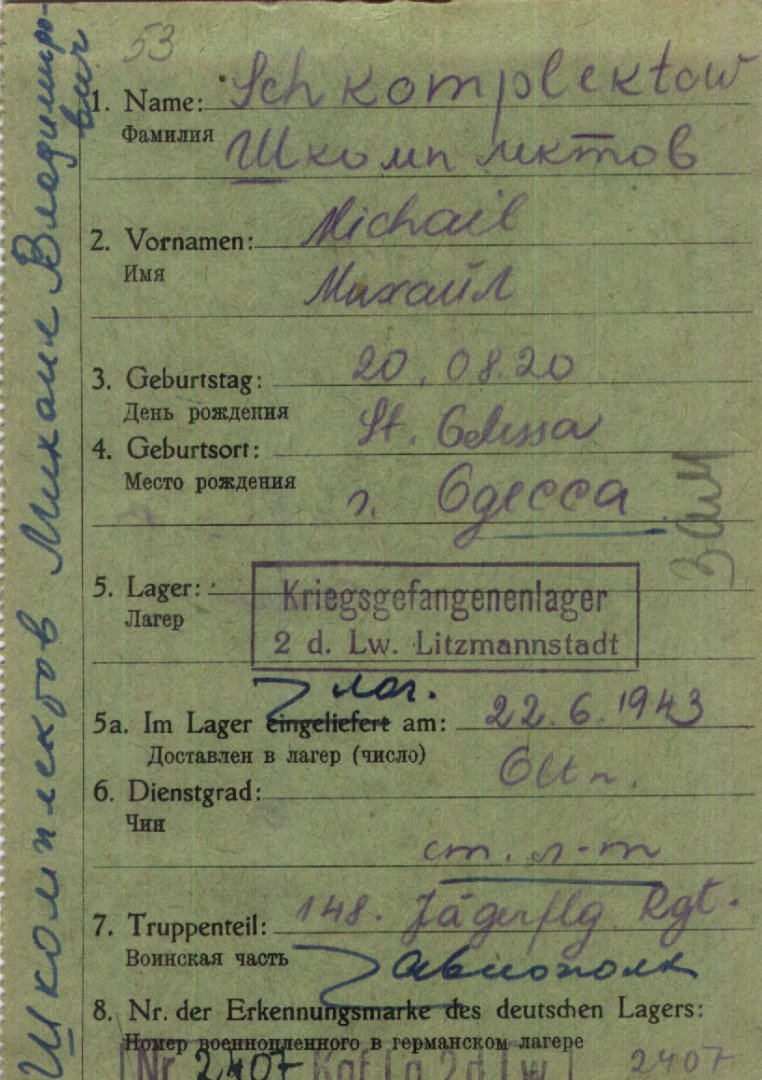 53
1. Name: Schkomplektow
Фамилия Шкомплектов
2. Vornamen: Michail
Имя Михаил
3. Geburtstag: 20.08.20
День рождения
4. Geburtsort: St. Odessa
Место рождения г. Одесса
5. Lager: Kriegsgefangenenlager
Лагер 2 d. Lw. Litzmannstadt
лаг.
5a. Im Lager eingeliefert am: 22.6.1943
Доставлен в лагер (число)
6. Dienstgrad: Obltn.
Чин
ст. л-т
7. Truppenteil: 148. Jägerflg. Rgt.
Воинская часть авиополк
8. Nr. der Erkennungsmarke des deutschen Lagers:
Номер военнопленного в германском лагере
Nr. 2407 Kgf. Lg. 2 d. Lw. 2407
Шкомплектов Михаил Владимирович